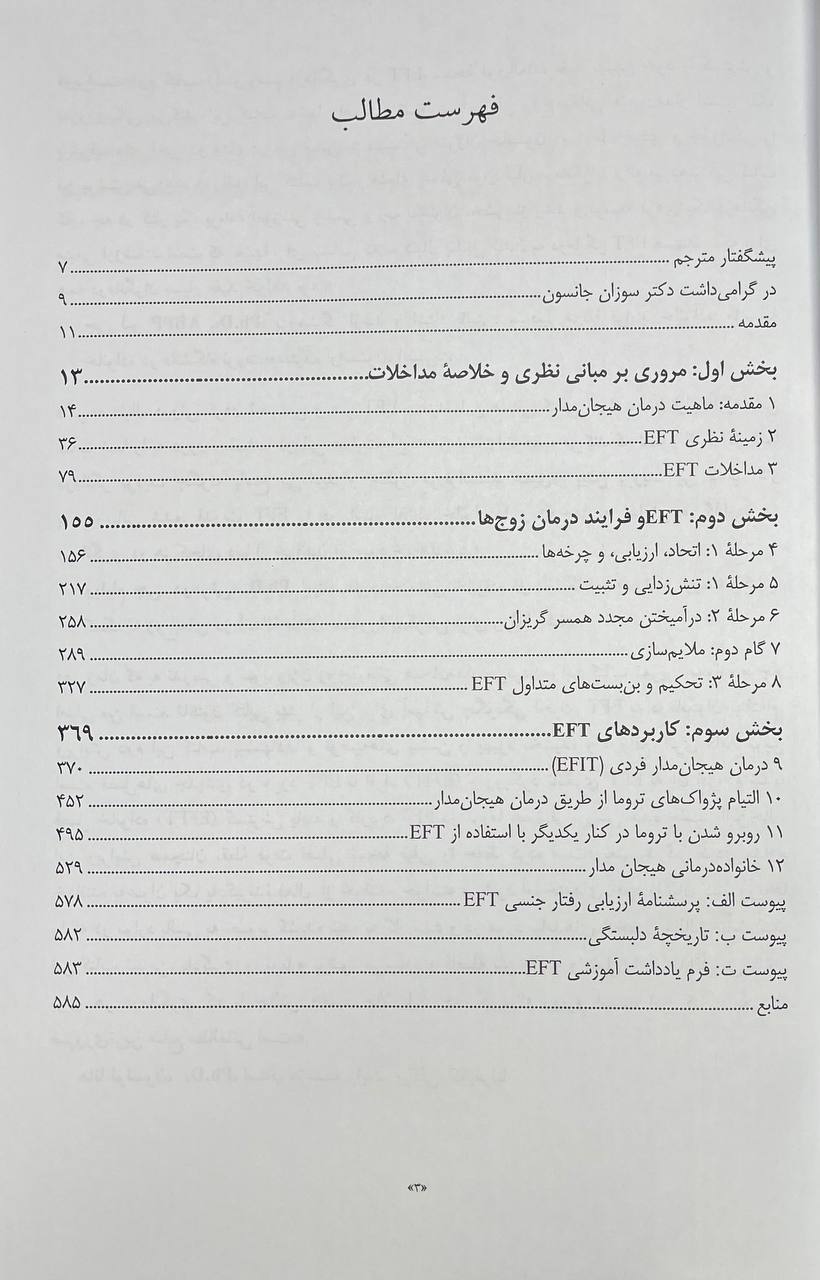 فهرست مطالب
پیشگفتار مترجم ........ ۷
در گرامی‌داشت دکتر سوزان جانسون ........ ۹
مقدمه ........ ۱۱
بخش اول: مروری بر مبانی نظری و خلاصهٔ مداخلات ........ ۱۳
۱ مقدمه: ماهیت درمان هیجان‌مدار ........ ۱۴
۲ زمینهٔ نظری EFT ........ ۳۶
۳ مداخلات EFT ........ ۷۹
بخش دوم: EFTو فرایند درمان زوج‌ها ........ ۱۵۵
۴ مرحلهٔ ۱: اتحاد، ارزیابی، و چرخه‌ها ........ ۱۵۶
۵ مرحلهٔ ۱: تنش‌زدایی و تثبیت ........ ۲۱۷
۶ مرحلهٔ ۲: درآمیختن مجدد همسر گریزان ........ ۲۵۸
۷ گام دوم: ملایم‌سازی ........ ۲۸۹
۸ مرحلهٔ ۳: تحکیم و بن‌بست‌های متداول EFT ........ ۳۲۷
بخش سوم: کاربردهای EFT ........ ۳۶۹
۹ درمان هیجان‌مدار فردی (EFIT) ........ ۳۷۰
۱۰ التیام پژواک‌های تروما از طریق درمان هیجان‌مدار ........ ۴۵۲
۱۱ روبرو شدن با تروما در کنار یکدیگر با استفاده از EFT ........ ۴۹۵
۱۲ خانواده‌درمانی هیجان مدار ........ ۵۲۹
پیوست الف: پرسشنامهٔ ارزیابی رفتار جنسی EFT ........ ۵۷۸
پیوست ب: تاریخچهٔ دلبستگی ........ ۵۸۲
پیوست ت: فرم یادداشت آموزشی EFT ........ ۵۸۳
منابع ........ ۵۸۵
«۳»